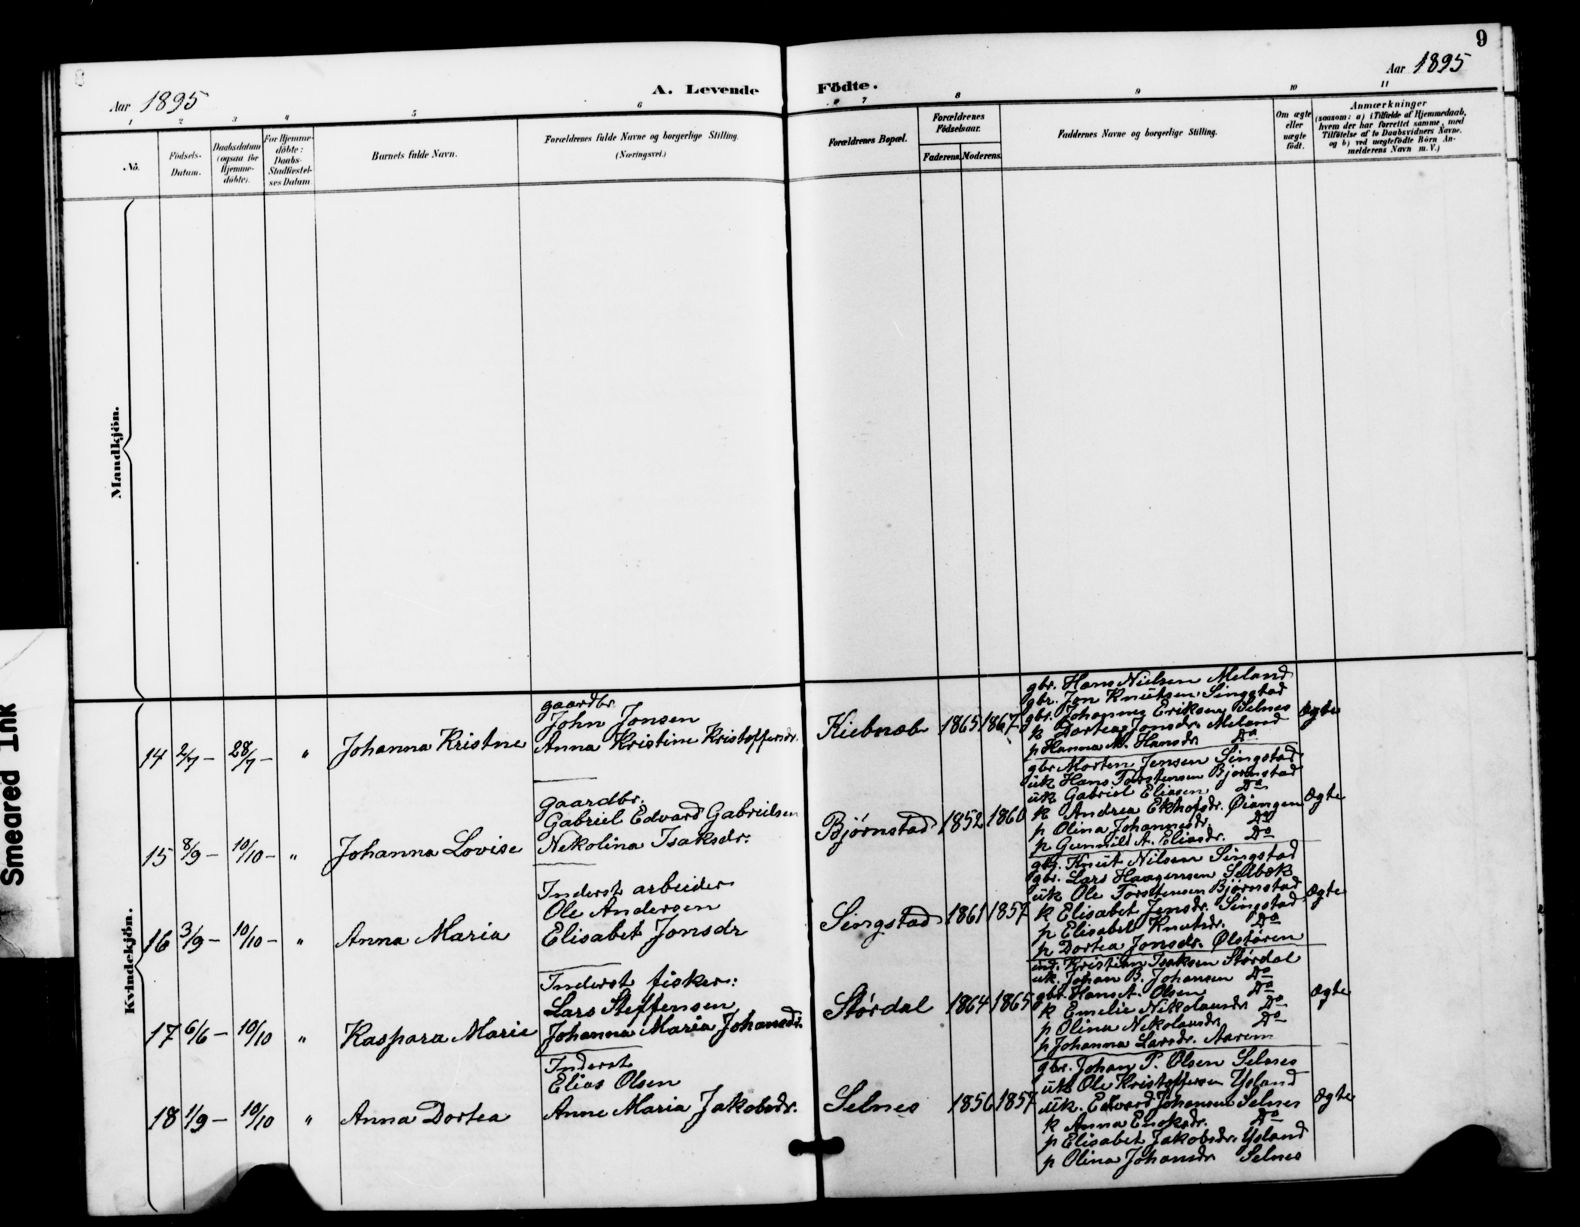 9
Aar 1895
A. Levende
Födte.
Aar 1895
1 2 3 4 5 6
6 7 8 9 10 11
No.
Födsels-
Datum.
Daabsdatum
(ogsaa for
Hjemme-
döbte).
For Hjemme-
döbte:
Daabs-
Stadfæstel-
ses Datum
Barnets fulde Navn.
Forældrenes fulde Navne og borgerlige Stilling
(Næringsvei.)
Forældrenes Bopæl.
Forældrenes
Födselsaar.
Faderens. Moderens.
Faddernes Navne og borgerlige Stilling.
Om ægte
eller
uægte
födt.
Anmærkninger
(saasom: a) i Tilfælde af Hjemmedaab,
hvem der har forrettet samme, med
Tilföielse af to Daabsvidners Navne.
og b) ved uægtefödte Börn An-
melderens Navn m. V.)
Mandkjön.
Smeared Ink
Kvindekjön.
14 2/7 – 28/7 – " Johanna Kristne
gaardbr.
John Jonsen
Anna Kristine Kristoffersdr.
Kiebnæb 1865 1867
gbr. Hans Nielsen Meland
gbr. Jon Knutsen Singstad
gbr. Johannes Eriksen Selnes
k Dortea Jonsdr. Meland
p Hanna M. Hansdr. Do
Ægte
15 8/9 – 10/10 – " Johanna Lovise
gaardbr.
Gabriel Edvard Gabrielsen
Nekolina Isaksdr.
Bjørnstad 1852 1860
gbr. Morten Jensen Singstad
uk Hans Torstensen Bjørnstad
uk Gabriel Eliasen Do
k Andrea Ekholsdr. Øiangen
p Olina Johannesdr. Do
p Gunnild A. Eliasdr. Do
Ægte
16 3/9 – 10/10 – " Anna Maria
Inderst arbeider
Ole Andersen
Elisabet Jonsdr
Singstad 1861 1857
gbr. Knut Nilsen Singstad
gbr. Lars Haagensen Selbæk
uk Ole Torstensen Bjørnstad
k Elisabet Jensdr. Singstad
p Elisabet Knutsdr. Do
p Dortea Jonsdr. Ølstøren
Ægte
17 6/6 – 10/10 " Kaspara Marie
Inderst fisker:
Lars Steffensen
Johanna Maria Johansdr.
Størdal 1864 1865
ind. Kristian Isaksen Størdal
uk. Johan B. Johansen Do
gbr. Hans A. Olsen Do
k Emelie Nikolaisdr. Do
p Olina Nekolaisdr. Do
p Johanna Larsdr. Aarem
Ægte
18 1/9 – 10/10 " Anna Dortea
Inderst
Elias Olsen
Anne Maria Jakobsdr.
Selnes 1856 1857
gbr. Johan P. Olsen Selnes
uk Ole Kristoffersen Ysland
uk. Edvard Johansen Selnes
k Anna Enoksdr. Do
p Elisabet Jakobsdr. Ysland
p Olina Johansdr. Selnes
Ægte